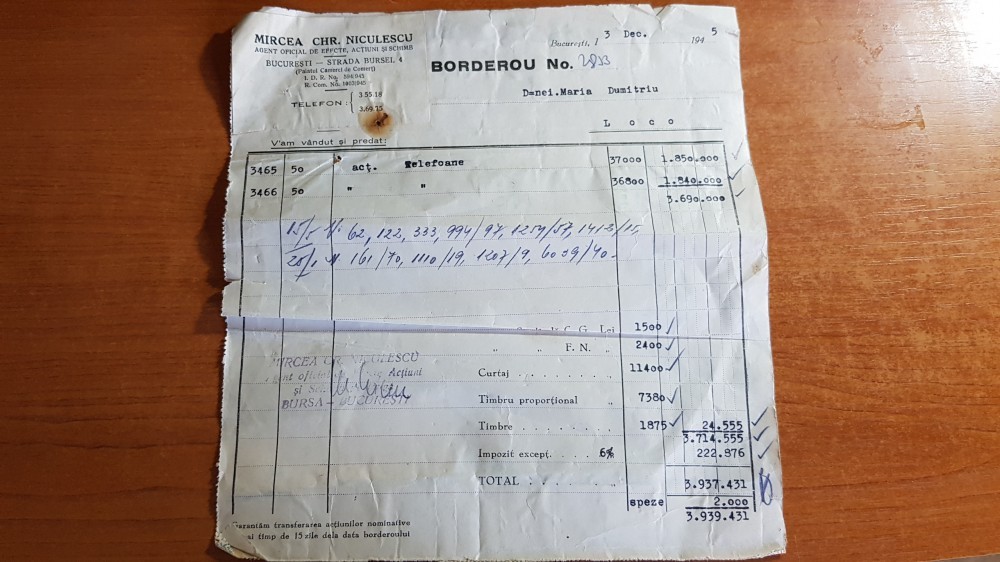 MIRCEA CHR. NICULESCU
AGENT OFICIAL DE EFECTE, ACȚIUNI ȘI SCHIMB
BUCUREȘTI — STRADA BURSEI, 4
(Palatul Camerei de Comerț)
I. D. R. No. 594/943
R. Com. No. 1803/945
TELEFON: 3.55.18
3.69.75
București, 3 Dec. 1945
BORDEROU No. 2833
D=nei. Maria Dumitriu
L o c o
V'am vândut și predat:
3465 50 acț. Telefoane 37000 1.850.000
3466 50 " " 36800 1.840.000
3.690.000
62, 122, 333, 994/97, 1259/57, 1413/15,
161/70, 1110/19, 1207/9, 6039/40
C. G. Lei 1500
" " F. N. " 2400
Curtaj . . . . . . . " 11400
Timbru proporțional " 7380
Timbre . . . . . . . " 1875 24.555
3.714.555
Impozit except. . . . 6% 222.876
TOTAL . . . . 3.937.431
speze 2.000
3.939.431
MIRCEA CR. NICULESCU
Acțiuni
și
BURSA — BUCUREȘTI
Garantăm transferarea acțiunilor nominative
timp de 15 zile dela data borderoului